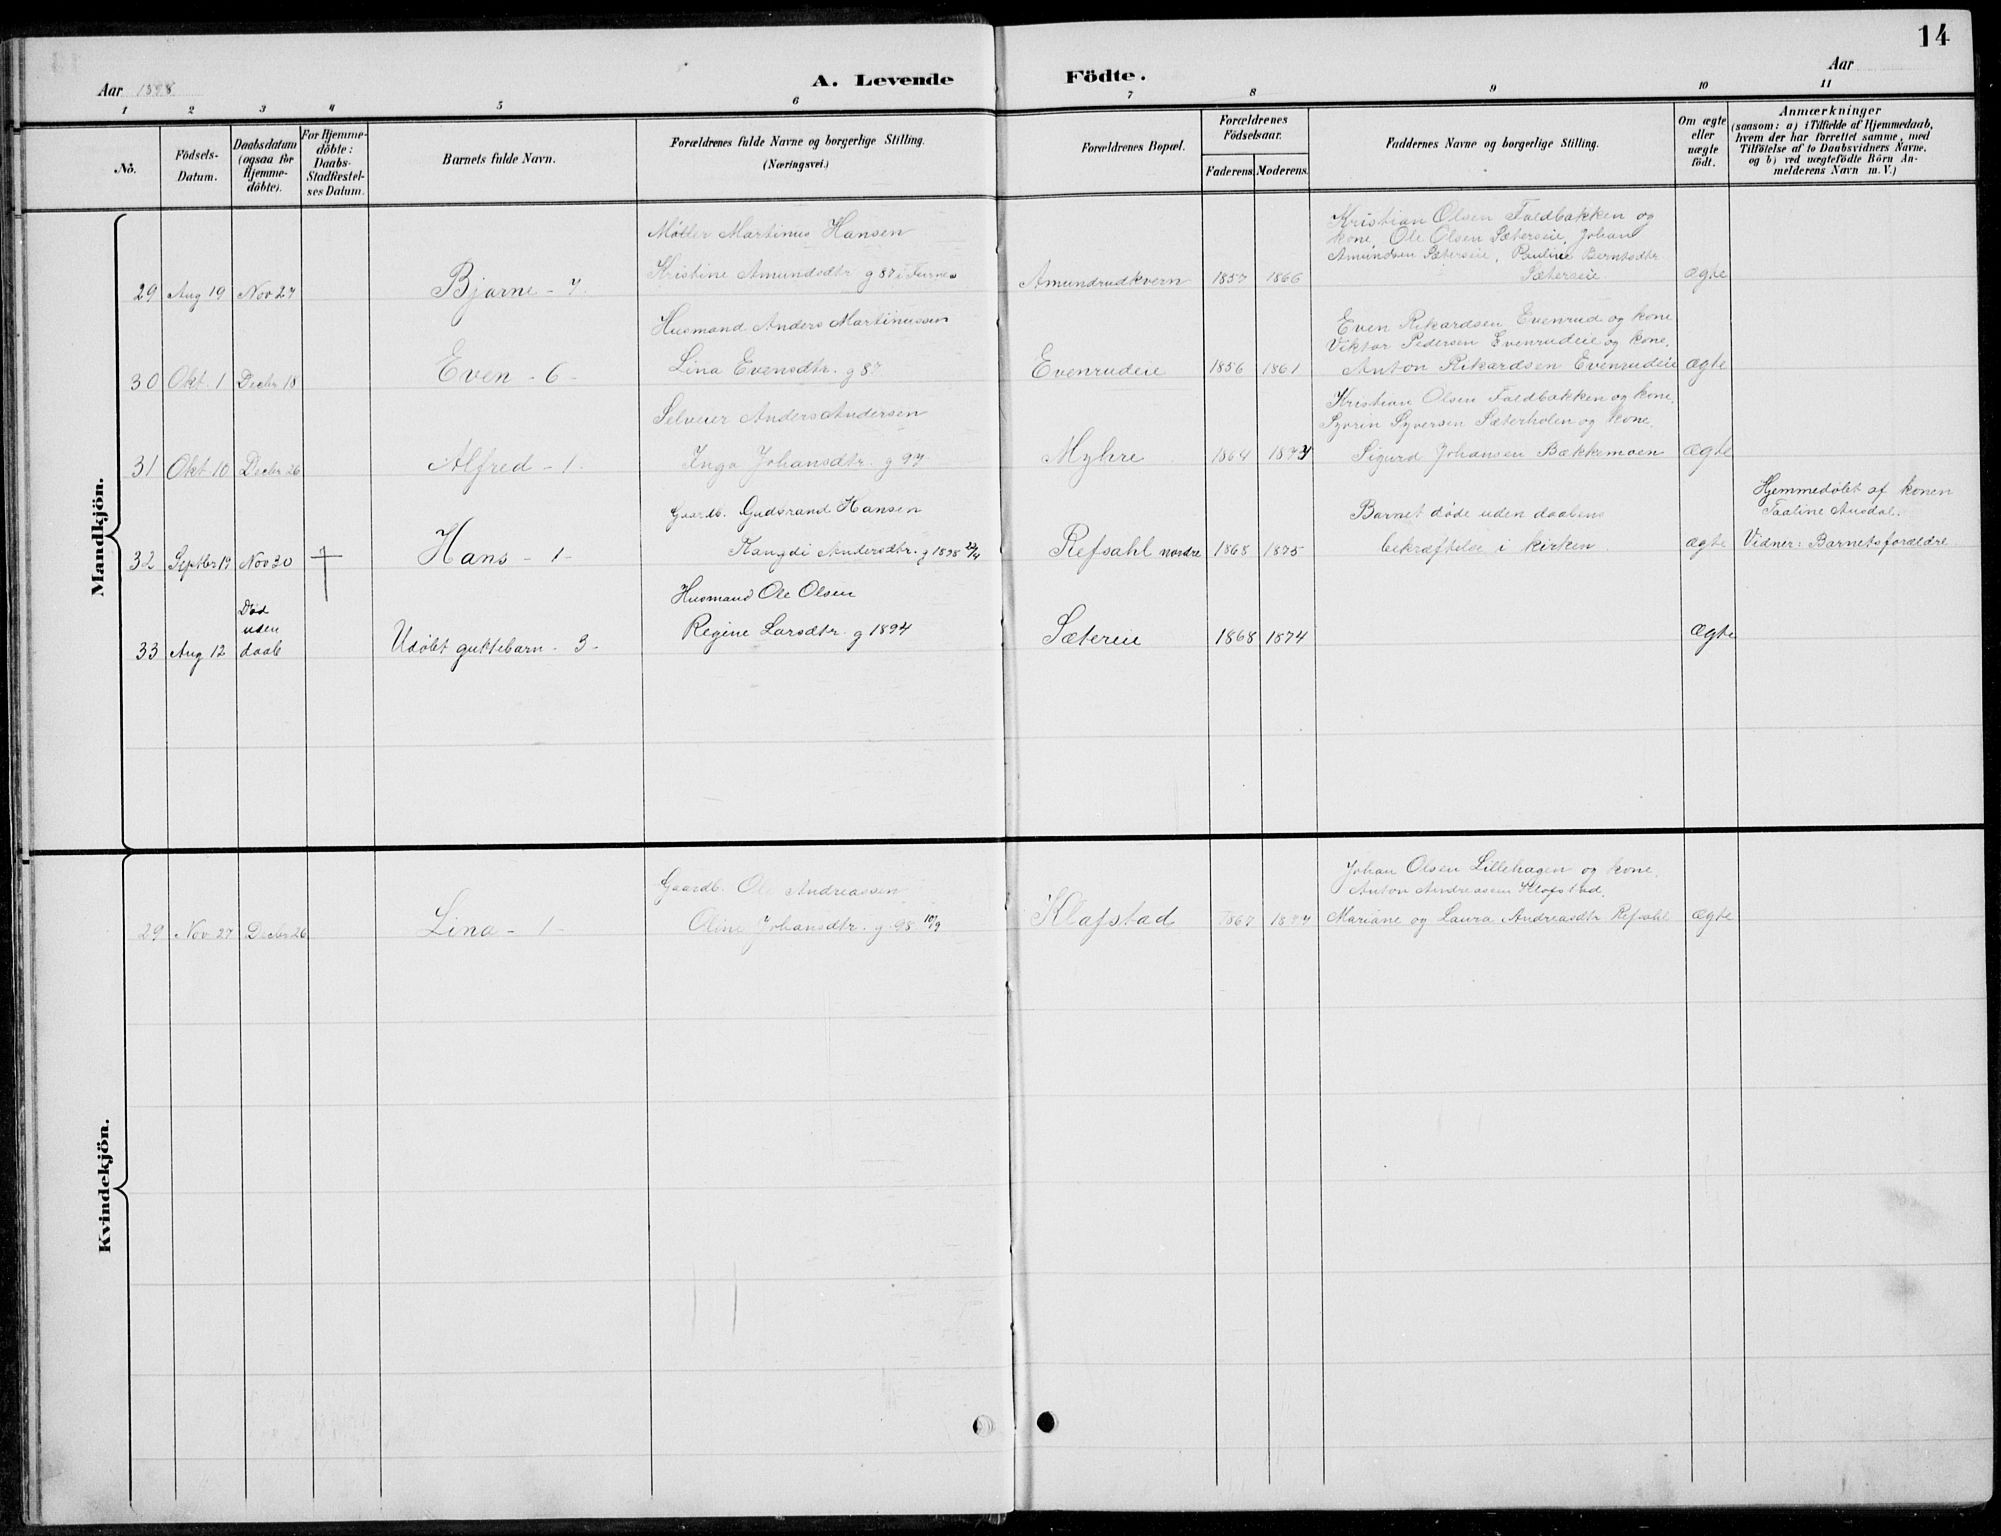 14
Aar 1898
A. Levende Födte.
Aar
1 2 3 4 5 6 7 8 9 10 11
No.
Födsels-Datum.
Daabsdatum (ogsaa for Hjemme-döbte).
For Hjemme-döbte: Daabs-Stadfæstel-ses Datum.
Barnets fulde Navn.
Forældrenes fulde Navne og borgerlige Stilling.
(Næringsvei.)
Forældrenes Bopæl.
Forældrenes Födselsaar.
Faderens. Moderens.
Faddernes Navne og borgerlige Stilling.
Om ægte eller uægte födt.
Anmærkninger
(saasom: a) i Tilfælde af Hjemmedaab,
hvem der har forrettet samme, med
Tilföielse af to Daabsvidners Navne,
og b) ved uægtefödte Börn An-
melderens Navn m. V.)
Mandkjön.
29 Aug 19 Nov 27 Bjarne - 7.
Møller Martinus Hansen
Kristine Amundsdtr g 87 i Furnes
Amundrudkvern 1857 1866
Kristian Olsen Faldbakken og
kone, Ole Olsen Sæterseie, Johan
Amundsen Sæterseie, Pauline Berntsdtr
Sæterseie
ægte
30 Okt. 1 Decbr 18 Even - 6 -
Husmand Anders Martinussen
Lina Evensdtr. g 87
Evenrudeie 1856 1861
Even Rikardsen Evenrud og kone
Viktor Pedersen Evenrudeie og kone,
Anton Rikardsen Evenrudeie
ægte
31 Okt 10 Decbr 26 Alfred - 1.
Selveier Anders Andersen
Inga Johansdtr. g 97
Myhre 1864 1877
Kristian Olsen Faldbakken og kone,
Syverin Syversen Sæterholen og kone,
Sigurd Johansen Bækkemoen
ægte
32 Septbr 19 Nov 20 † Hans - 1
Gaardb. Gudbrand Hansen
Andersdtr. g 1898 22/4
Refsahl nordre 1868 1875
Barnet døde uden daabens
bekræftelse i kirken.
ægte
Hjemmedøbt af konen
Taaline Ausdal.
Vidner: Barnets forældre
33 Aug 12
Død
uden
daab
Udøbt guttebarn - 3 -
Husmand Ole Olsen
Regine Larsdtr. g 1894
Sætereie 1868 1874
ægte
Kvindekjön.
29 Nov 27 Decbr 26 Lina - 1 -
Gaardb. Ole Andreassen
Oline Johansdtr. g. 98 10/9
Klafstad 1867 1877
Johan Olsen Lillehagen og kone,
Anton Andreassen Klofstad,
Mariane og Laura Andreasdtr Refsahl
ægte